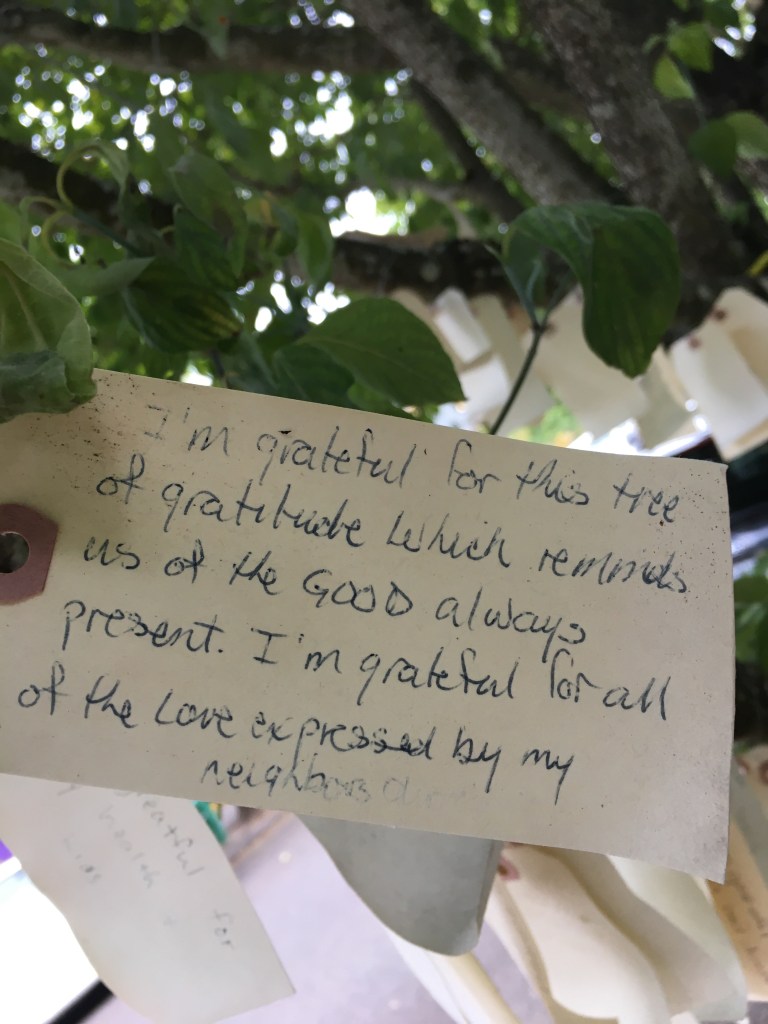 I'm grateful for this tree
of gratitude which reminds
us of the GOOD always
present. I'm grateful for all
of the Love expressed by my
neighbors
health
for